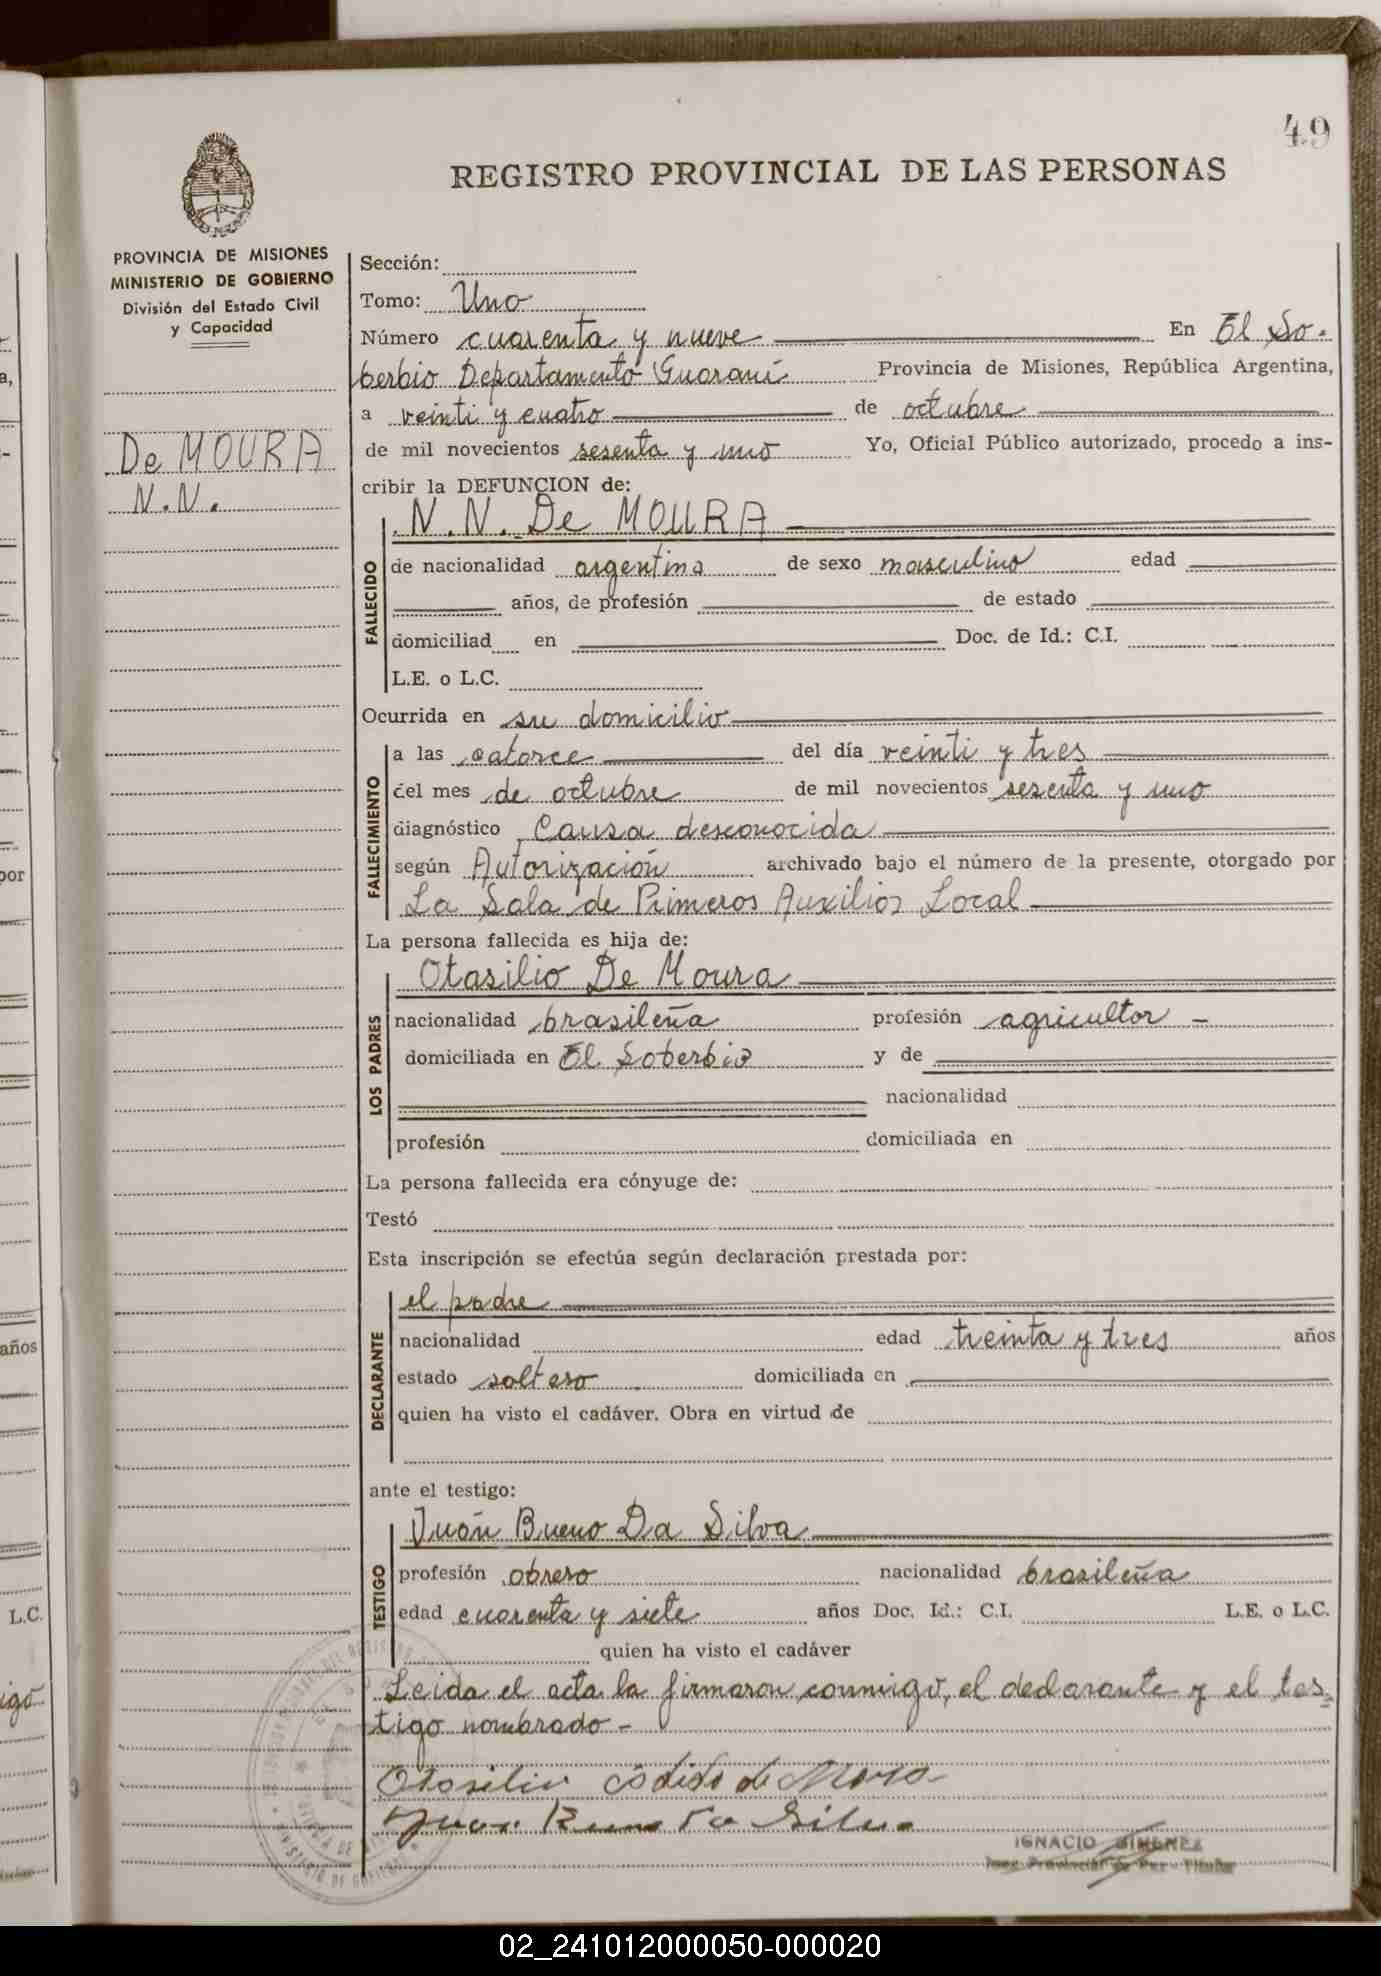 49
REGISTRO PROVINCIAL DE LAS PERSONAS
PROVINCIA DE MISIONES
MINISTERIO DE GOBIERNO
División del Estado Civil
y Capacidad
De MOURA
N.N.
Sección:
Tomo: Uno
Número cuarenta y nueve En El So-
berbio Departamento Guaraní Provincia de Misiones, República Argentina,
a veinti y cuatro de octubre
de mil novecientos sesenta y uno Yo, Oficial Público autorizado, procedo a ins-
cribir la DEFUNCION de:
N.N. De MOURA
FALLECIDO
de nacionalidad argentina de sexo masculino edad
años, de profesión de estado
domiciliad en Doc. de Id.: C.I.
L.E. o L.C.
Ocurrida en su domicilio
FALLECIMIENTO
a las catorce del día veinti y tres
del mes de octubre de mil novecientos sesenta y uno
diagnóstico Causa desconocida
según Autorización archivado bajo el número de la presente, otorgado por
La Sala de Primeros Auxilios Local
La persona fallecida es hija de:
LOS PADRES
Otasilio De Moura
nacionalidad brasileña profesión agricultor -
domiciliada en El Soberbio y de
nacionalidad
profesión domiciliada en
La persona fallecida era cónyuge de:
Testó
Esta inscripción se efectúa según declaración prestada por:
DECLARANTE
el padre
nacionalidad edad treinta y tres años
estado soltero domiciliada en
quien ha visto el cadáver. Obra en virtud de
ante el testigo:
TESTIGO
Juan Bueno Da Silva
profesión obrero nacionalidad brasileña
edad cuarenta y siete años Doc. Id.: C.I. L.E. o L.C.
quien ha visto el cadáver
Leida el acta la firmaron conmigo, el declarante y el tes-
tigo nombrado -
Otasilio de Mora
Juan Bueno Da Silva
IGNACIO GIMENEZ
02_241012000050-000020